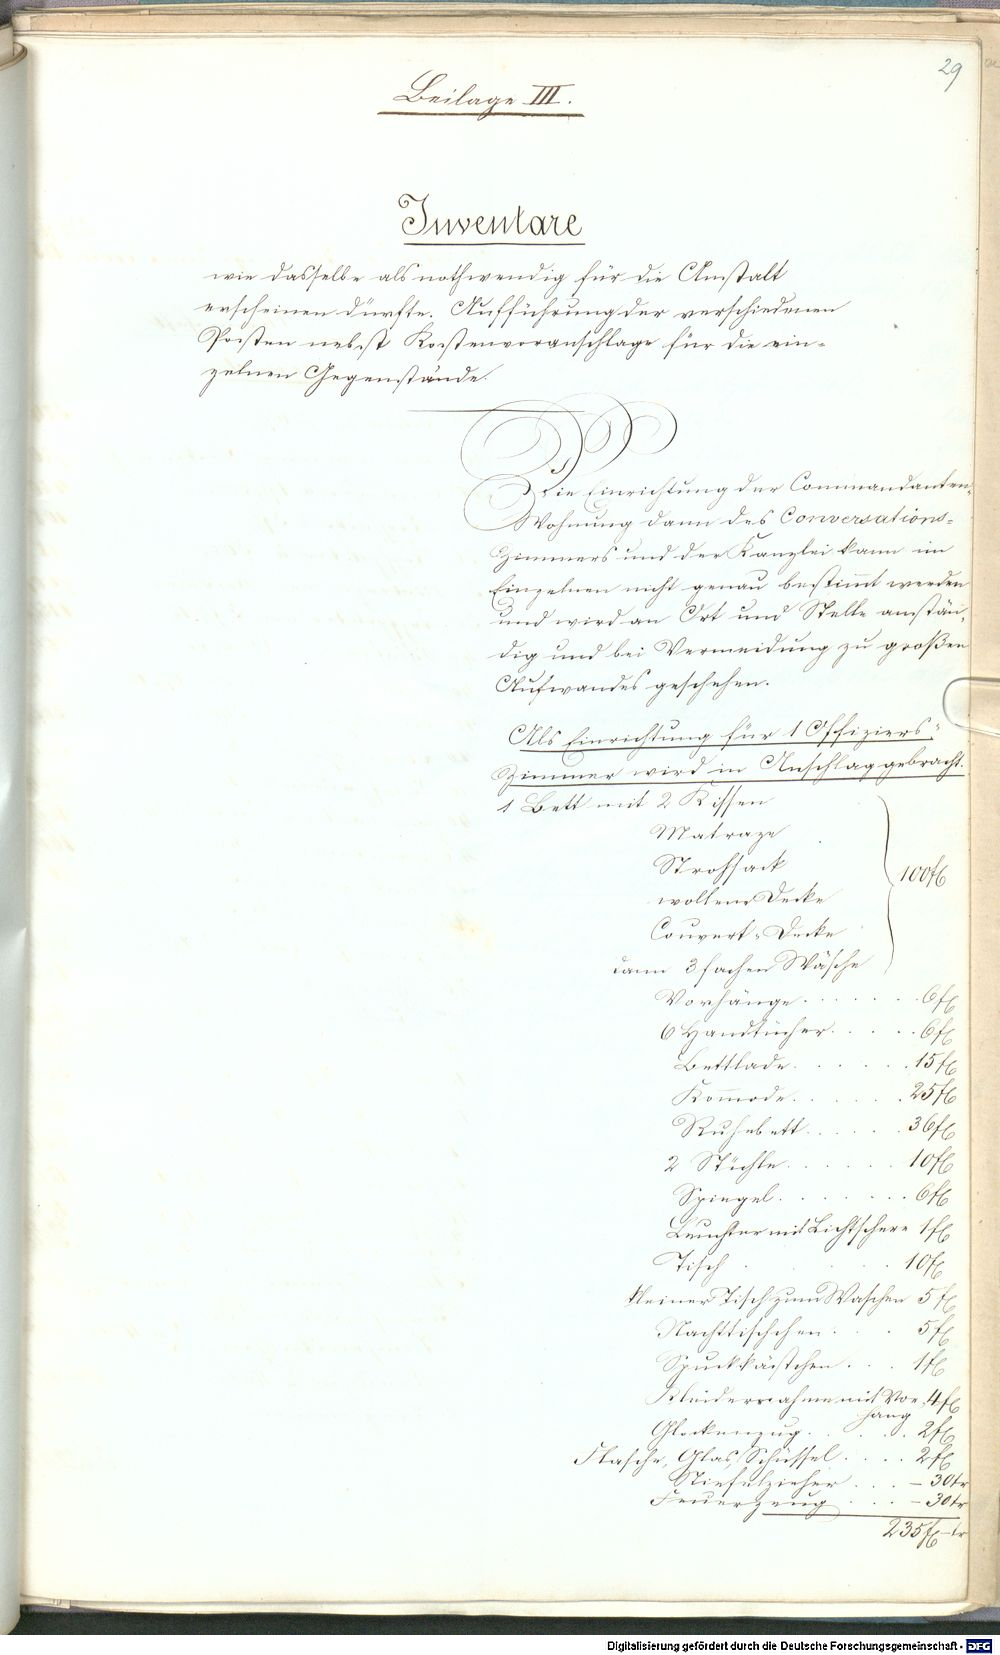 29
Beilage III.
Inventare
wie dasselbe als nothwendig für die Anstalt
erscheinen dürfte. Aufführung der verschiedenen
Posten nebst Kostenvoranschlage für die ein-
zelnen Gegenstände.
Die Einrichtung der Commandanten-
Wohnung dann des Conversations-
Zimmers und der Kanzlei kann im
Einzelnen nicht genau bestimmt werden
und wird an Ort und Stelle anstän-
dig und bei Vermeidung zu großen
Aufwandes geschehen.
Als Einrichtung für 1 Offiziers-
Zimmer wird in Anschlag gebracht.
1 Bett mit 2 Kissen
Matraze
Strohsack
wollene Decke
Couvert-Decke
dann 3fachen Wäsche
100 fl
Vorhänge . . . . . . . 6 fl
6 Handtücher . . . . . 6 fl
Bettlade . . . . . . 15 fl
Kom̅ode . . . . . . 25 fl
Ruhebett . . . . . 36 fl
2 Stühle . . . . . . 10 fl
Spiegel . . . . . . . 6 fl
Leuchter mit Lichtschere 1 fl
Tisch . . . . . 10 fl
kleiner Tisch zum Waschen 5 fl
Nachttischchen . . . 5 fl
Spuckkästchen . . . 1 fl
Kleiderrahme mit Vor- 4 fl
hang
Glockenzug . . . . . 2 fl
Flasche, Glas, Schüssel . . . . 2 fl
Stiefelzieher . . . – 30 kr
Feuerzeug . . . – 30 kr
235 fl – kr
Digitalisierung gefördert durch die Deutsche Forschungsgemeinschaft - DFG